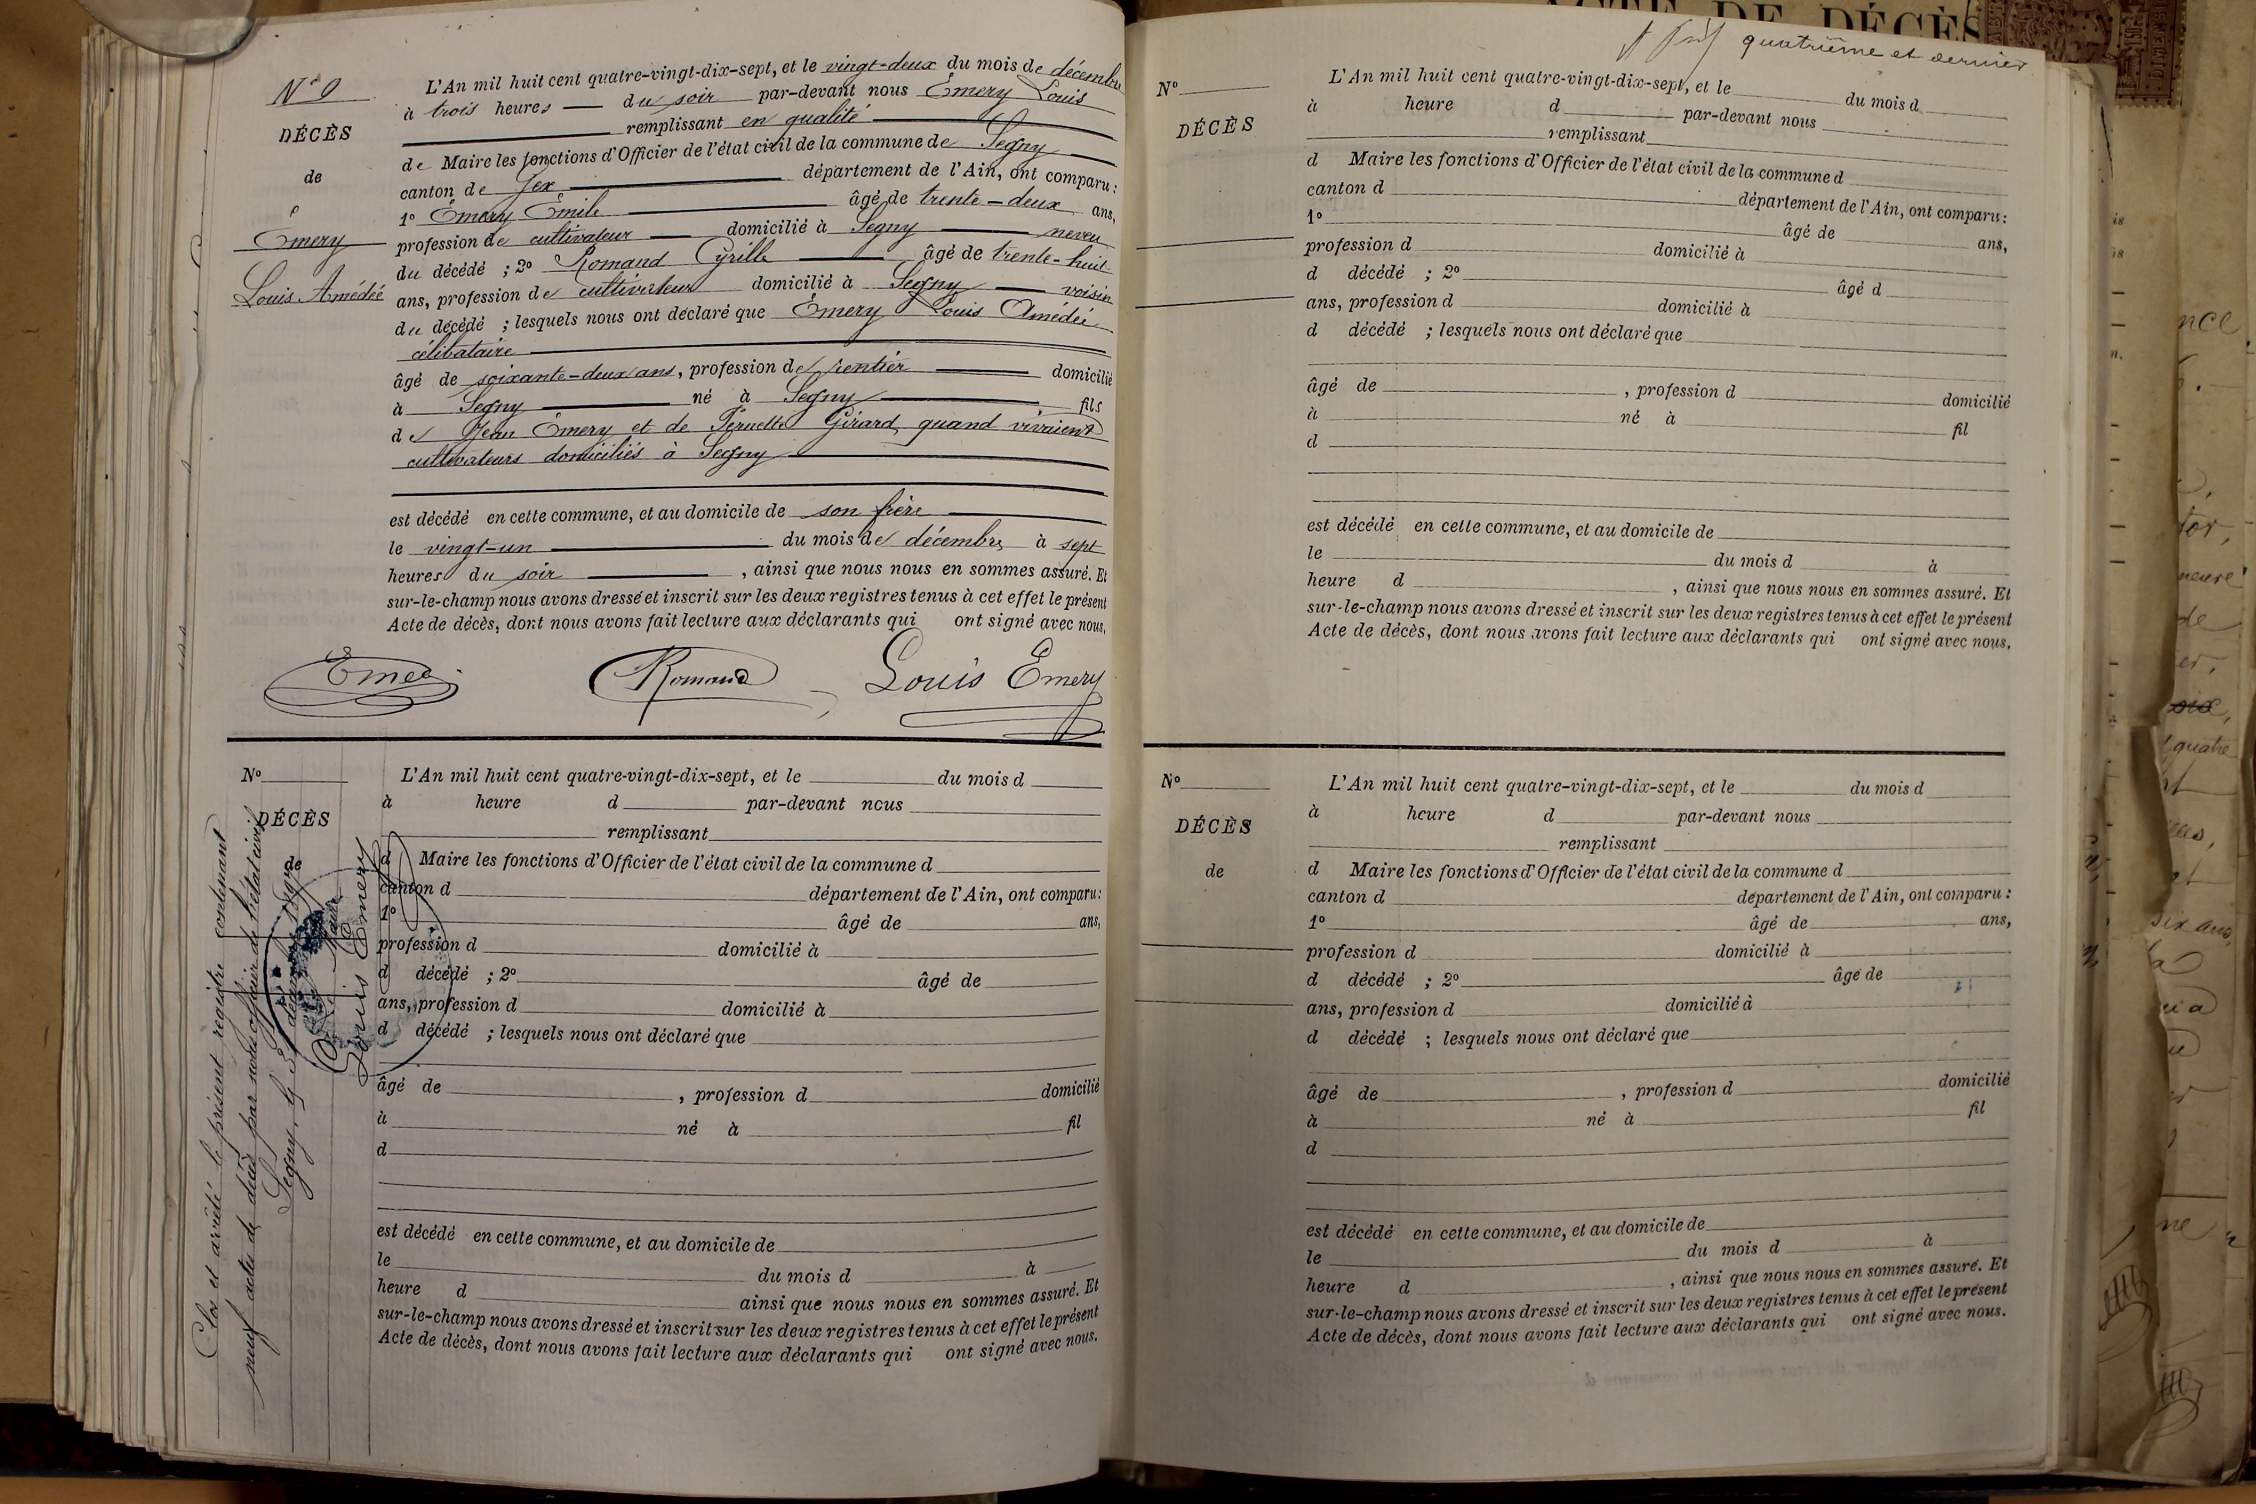 N° 9
DÉCÈS
de
Emery
Louis Amédée
L'An mil huit cent quatre-vingt-dix-sept, et le vingt-deux du mois de décembre
à trois heures du soir par-devant nous Émery Louis
remplissant en qualité
de Maire les fonctions d'Officier de l'état civil de la commune de Segny
canton de Gex département de l'Ain, ont comparu :
1° Émery Émile âgé de trente-deux ans,
profession de cultivateur domicilié à Segny neveu
du décédé ; 2° Romand Cyrille âgé de trente-huit
ans, profession de cultivateur domicilié à Segny voisin
du décédé ; lesquels nous ont déclaré que Émery Louis Amédée
célibataire
âgé de soixante-deux ans, profession de rentier domicilié
à Segny né à Segny fils
de Jean Émery et de Pernette Girard, quand vivaient
cultivateurs domiciliés à Segny
est décédé en cette commune, et au domicile de son frère
le vingt-un du mois de décembre à sept
heures du soir , ainsi que nous nous en sommes assuré. Et
sur-le-champ nous avons dressé et inscrit sur les deux registres tenus à cet effet le présent
Acte de décès, dont nous avons fait lecture aux déclarants qui ont signé avec nous,
Emery Romand Louis Emery
N°
DÉCÈS
de
L'An mil huit cent quatre-vingt-dix-sept, et le du mois d
à heure d par-devant nous
remplissant
d Maire les fonctions d'Officier de l'état civil de la commune d
canton d département de l'Ain, ont comparu :
1° âgé de ans,
profession d domicilié à
d décédé ; 2° âgé de
ans, profession d domicilié à
d décédé ; lesquels nous ont déclaré que
âgé de , profession d domicilié
à né à fil
d
est décédé en cette commune, et au domicile de
le du mois d à
heure d ainsi que nous nous en sommes assuré. Et
sur-le-champ nous avons dressé et inscrit sur les deux registres tenus à cet effet le présent
Acte de décès, dont nous avons fait lecture aux déclarants qui ont signé avec nous.
Clos et arrêté le présent registre contenant
neuf actes de décès par nous officier de l'état civil
Segny, le 31 décembre 1897
Le Maire
Louis Emery
quatrième et dernier
N°
DÉCÈS
L'An mil huit cent quatre-vingt-dix-sept, et le du mois d
à heure d par-devant nous
remplissant
d Maire les fonctions d'Officier de l'état civil de la commune d
canton d département de l'Ain, ont comparu :
1° âgé de ans,
profession d domicilié à
d décédé ; 2° âgé d
ans, profession d domicilié à
d décédé ; lesquels nous ont déclaré que
âgé de , profession d domicilié
à né à fil
d
est décédé en cette commune, et au domicile de
le du mois d à
heure d , ainsi que nous nous en sommes assuré. Et
sur-le-champ nous avons dressé et inscrit sur les deux registres tenus à cet effet le présent
Acte de décès, dont nous avons fait lecture aux déclarants qui ont signé avec nous.
N°
DÉCÈS
de
L'An mil huit cent quatre-vingt-dix-sept, et le du mois d
à heure d par-devant nous
remplissant
d Maire les fonctions d'Officier de l'état civil de la commune d
canton d département de l'Ain, ont comparu :
1° âgé de ans,
profession d domicilié à
d décédé ; 2° âgé de
ans, profession d domicilié à
d décédé ; lesquels nous ont déclaré que
âgé de , profession d domicilié
à né à fil
d
est décédé en cette commune, et au domicile de
le du mois d à
heure d , ainsi que nous nous en sommes assuré. Et
sur-le-champ nous avons dressé et inscrit sur les deux registres tenus à cet effet le présent
Acte de décès, dont nous avons fait lecture aux déclarants qui ont signé avec nous.
ACTE DE DÉCÈS